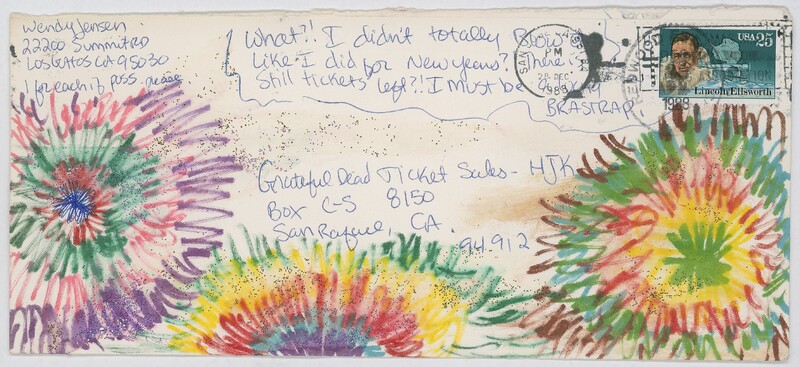 Wendy Jensen
22200 Summit RD
Los Gatos CA 95030
1 for each if poss. please
What?! I didn't totally Blow
Like I did for New Years? There is
Still tickets left?! I Must be
BRASTRAP
SAN
PM
28 DEC
1988
USA 25
Lincoln Ellsworth
1988
Grateful Dead Ticket Sales - HJK
Box C-S 8150
San Rafael, CA.
94912